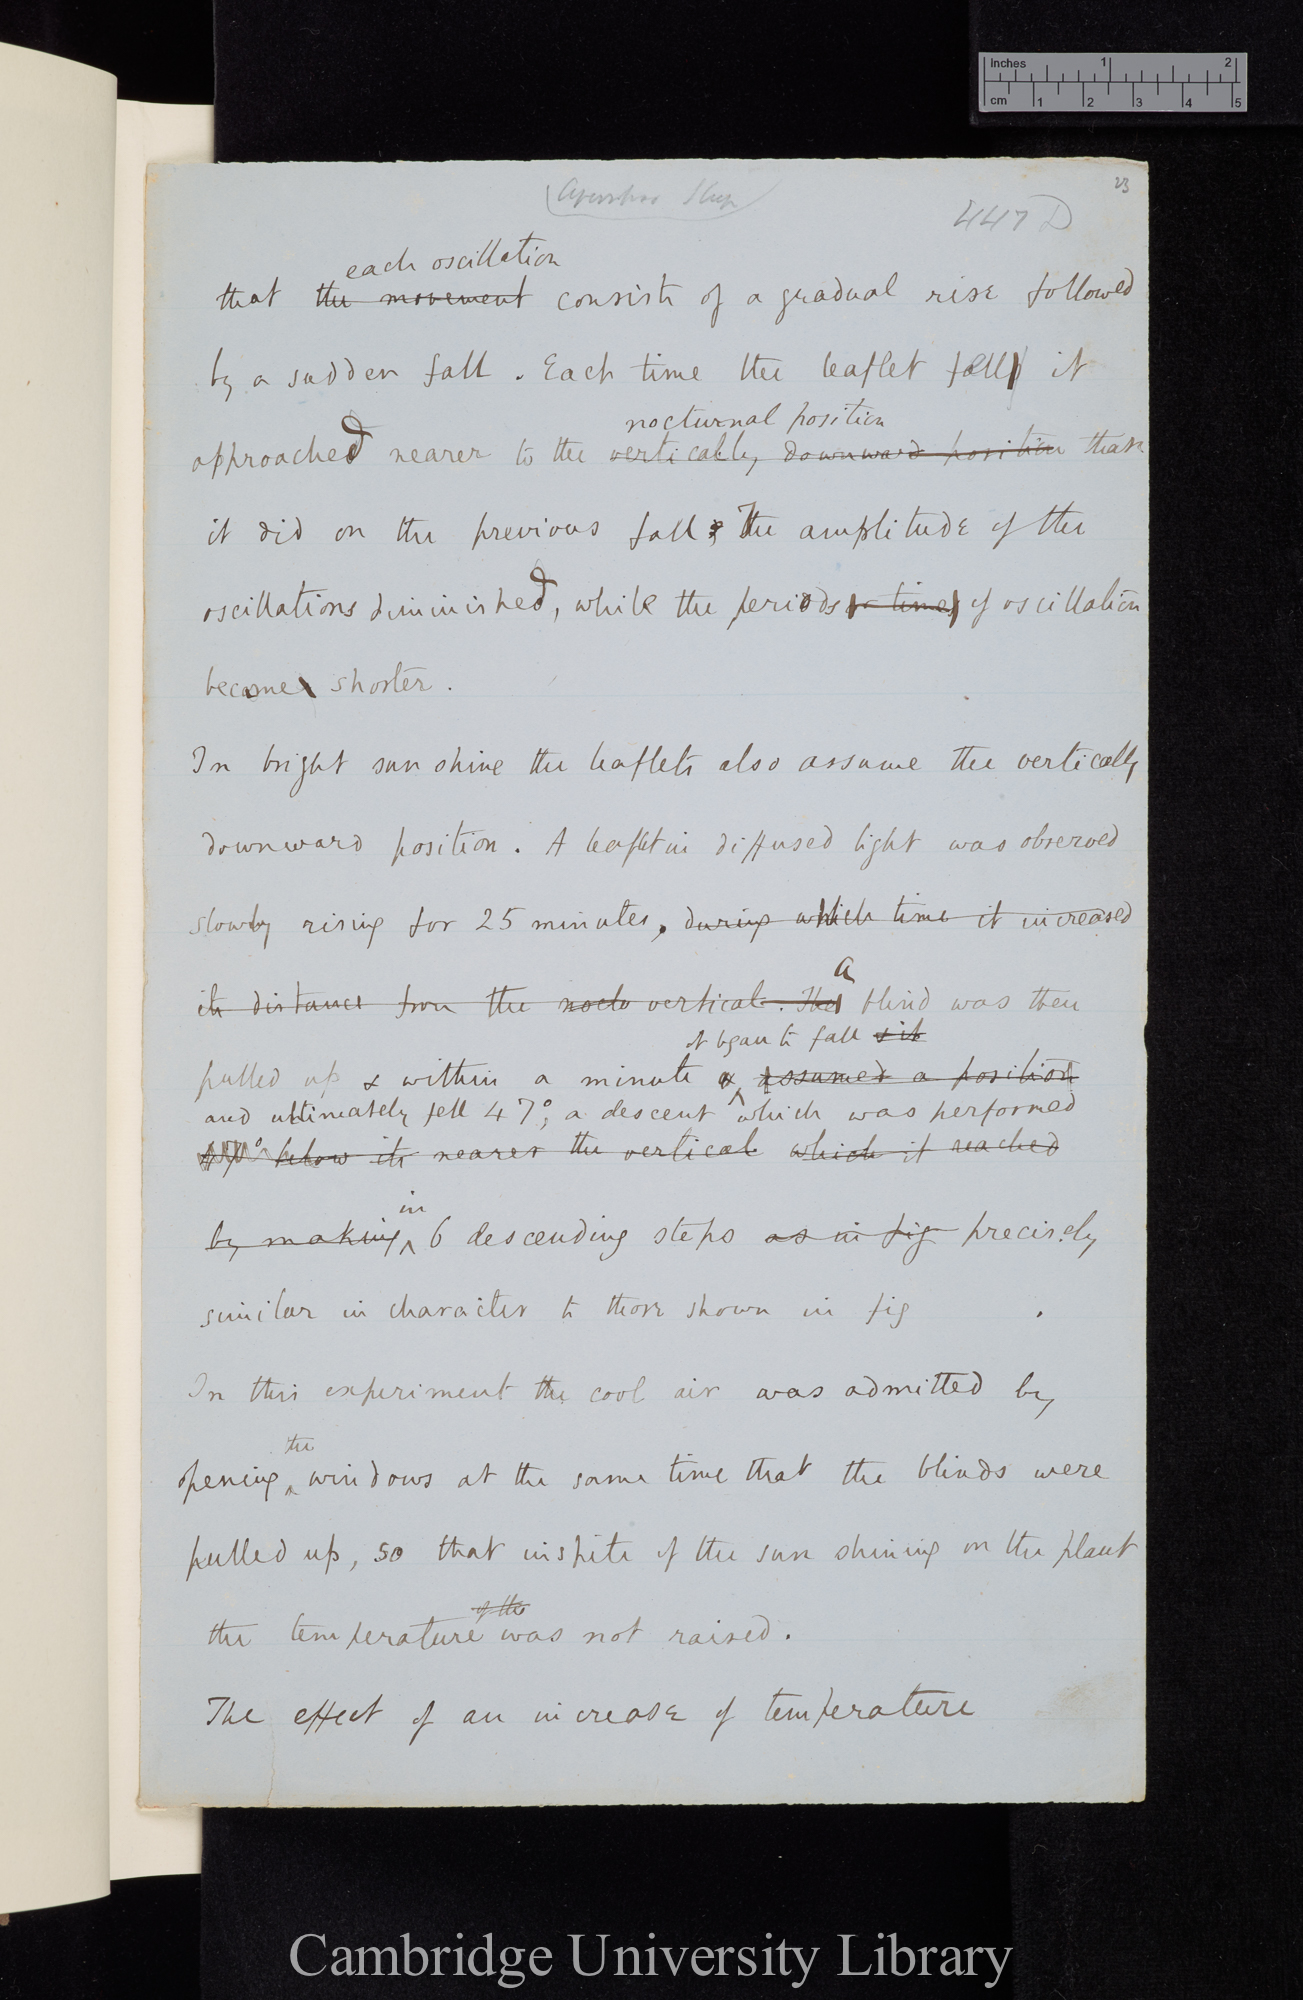 Inches 1 2
cm 1 2 3 4 5
23
Averrhoa Sleep
447 D
each oscillation
that the movement consists of a gradual rise followed
by a sudden fall. Each time the leaflet fell it
nocturnal position
approached nearer to the vertically downward position than
it did on the previous fall; The amplitude of the
oscillations diminished, while the periods or times of oscillation
became shorter.
In bright sunshine the leaflets also assume the vertically
downward position. A leaflet in diffused light was observed
slowly rising for 25 minutes, during which time it increased
a
its distance from the nocto vertical. The blind was then
it began to fall & it
pulled up & within a minute & assumed a position
and ultimately fell 47°, a descent which was performed
47° below its nearer the vertical which it reached
in
by making 6 descending steps as in fig precisely
similar in character to those shown in fig .
In this experiment the cool air was admitted by
the
opening windows at the same time that the blinds were
pulled up, so that inspite of the sun shining on the plant
of the
the temperature was not raised.
The effect of an increase of temperature
Cambridge University Library